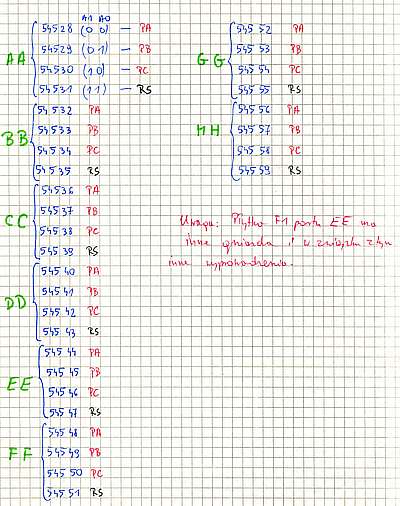 A1 A0
AA 54528 (0 0) — PA
54529 (0 1) — PB
54530 (1 0) — PC
54531 (1 1) — RS
BB 54532 PA
54533 PB
54534 PC
54535 RS
CC 54536 PA
54537 PB
54538 PC
54539 RS
DD 54540 PA
54541 PB
54542 PC
54543 RS
EE 54544 PA
54545 PB
54546 PC
54547 RS
FF 54548 PA
54549 PB
54550 PC
54551 RS
GG 54552 PA
54553 PB
54554 PC
54555 RS
HH 54556 PA
54557 PB
54558 PC
54559 RS
Uwaga: Płytka F1 portu EE ma
inne gniazda i w związku z tym
inne wyprowadzenia.